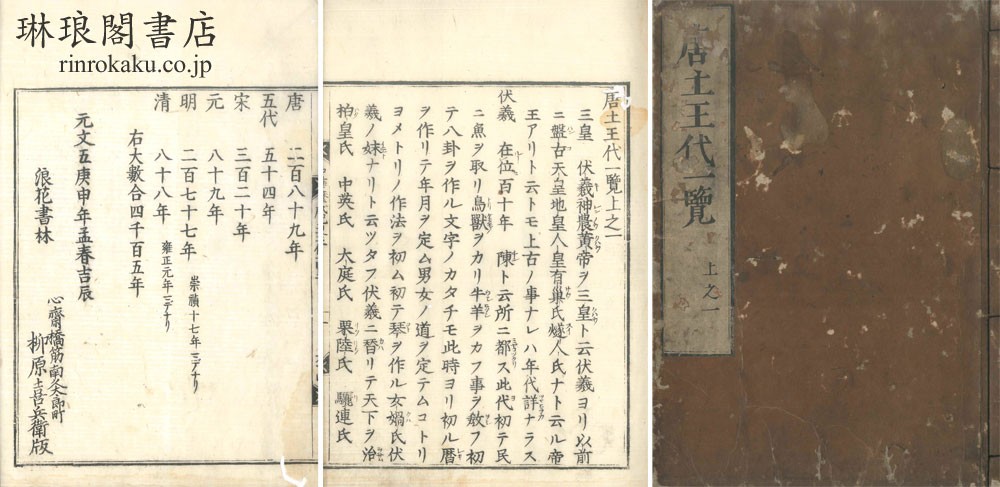 琳琅閣書店
rinrokaku.co.jp
唐土王代一覽
上之一
唐土王代一覽上之一
三皇　伏羲神農黄帝ヲ三皇ト云伏羲ヨリ以前
ニ盤古天皇地皇人皇有巣氏燧人氏ナト云ル帝
王アリト云トモ上古ノ事ナレハ年代詳ナラス
伏羲　在位百十年　陳ト云所ニ都ス此代初テ民
ニ魚ヲ取リ鳥獸ヲカリ牛羊ヲカフ事ヲ敎フ初
テ八卦ヲ作ル文字ノカタチモ此時ヨリ初ル暦
ヲ作リテ年月ヲ定ム男女ノ道ヲ定テムコトリ
ヨメトリノ作法ヲ初ム初テ琴ヲ作ル女媧氏伏
羲ノ妹ナリト云ツタフ伏羲ニ替リテ天下ヲ治
柏皇氏　中英氏　大庭氏　栗陸氏　驪連氏
唐　二百八十九年
五代　五十四年
宋　三百二十年
元　八十九年
明　二百七十七年　崇禎十七年ニテナリ
清　八十八年　雍正元年ニテナリ
右大數合四千百五年
元文五庚申年孟春吉辰
浪花書林
心齋橋筋南久太郎町
柳原喜兵衛版